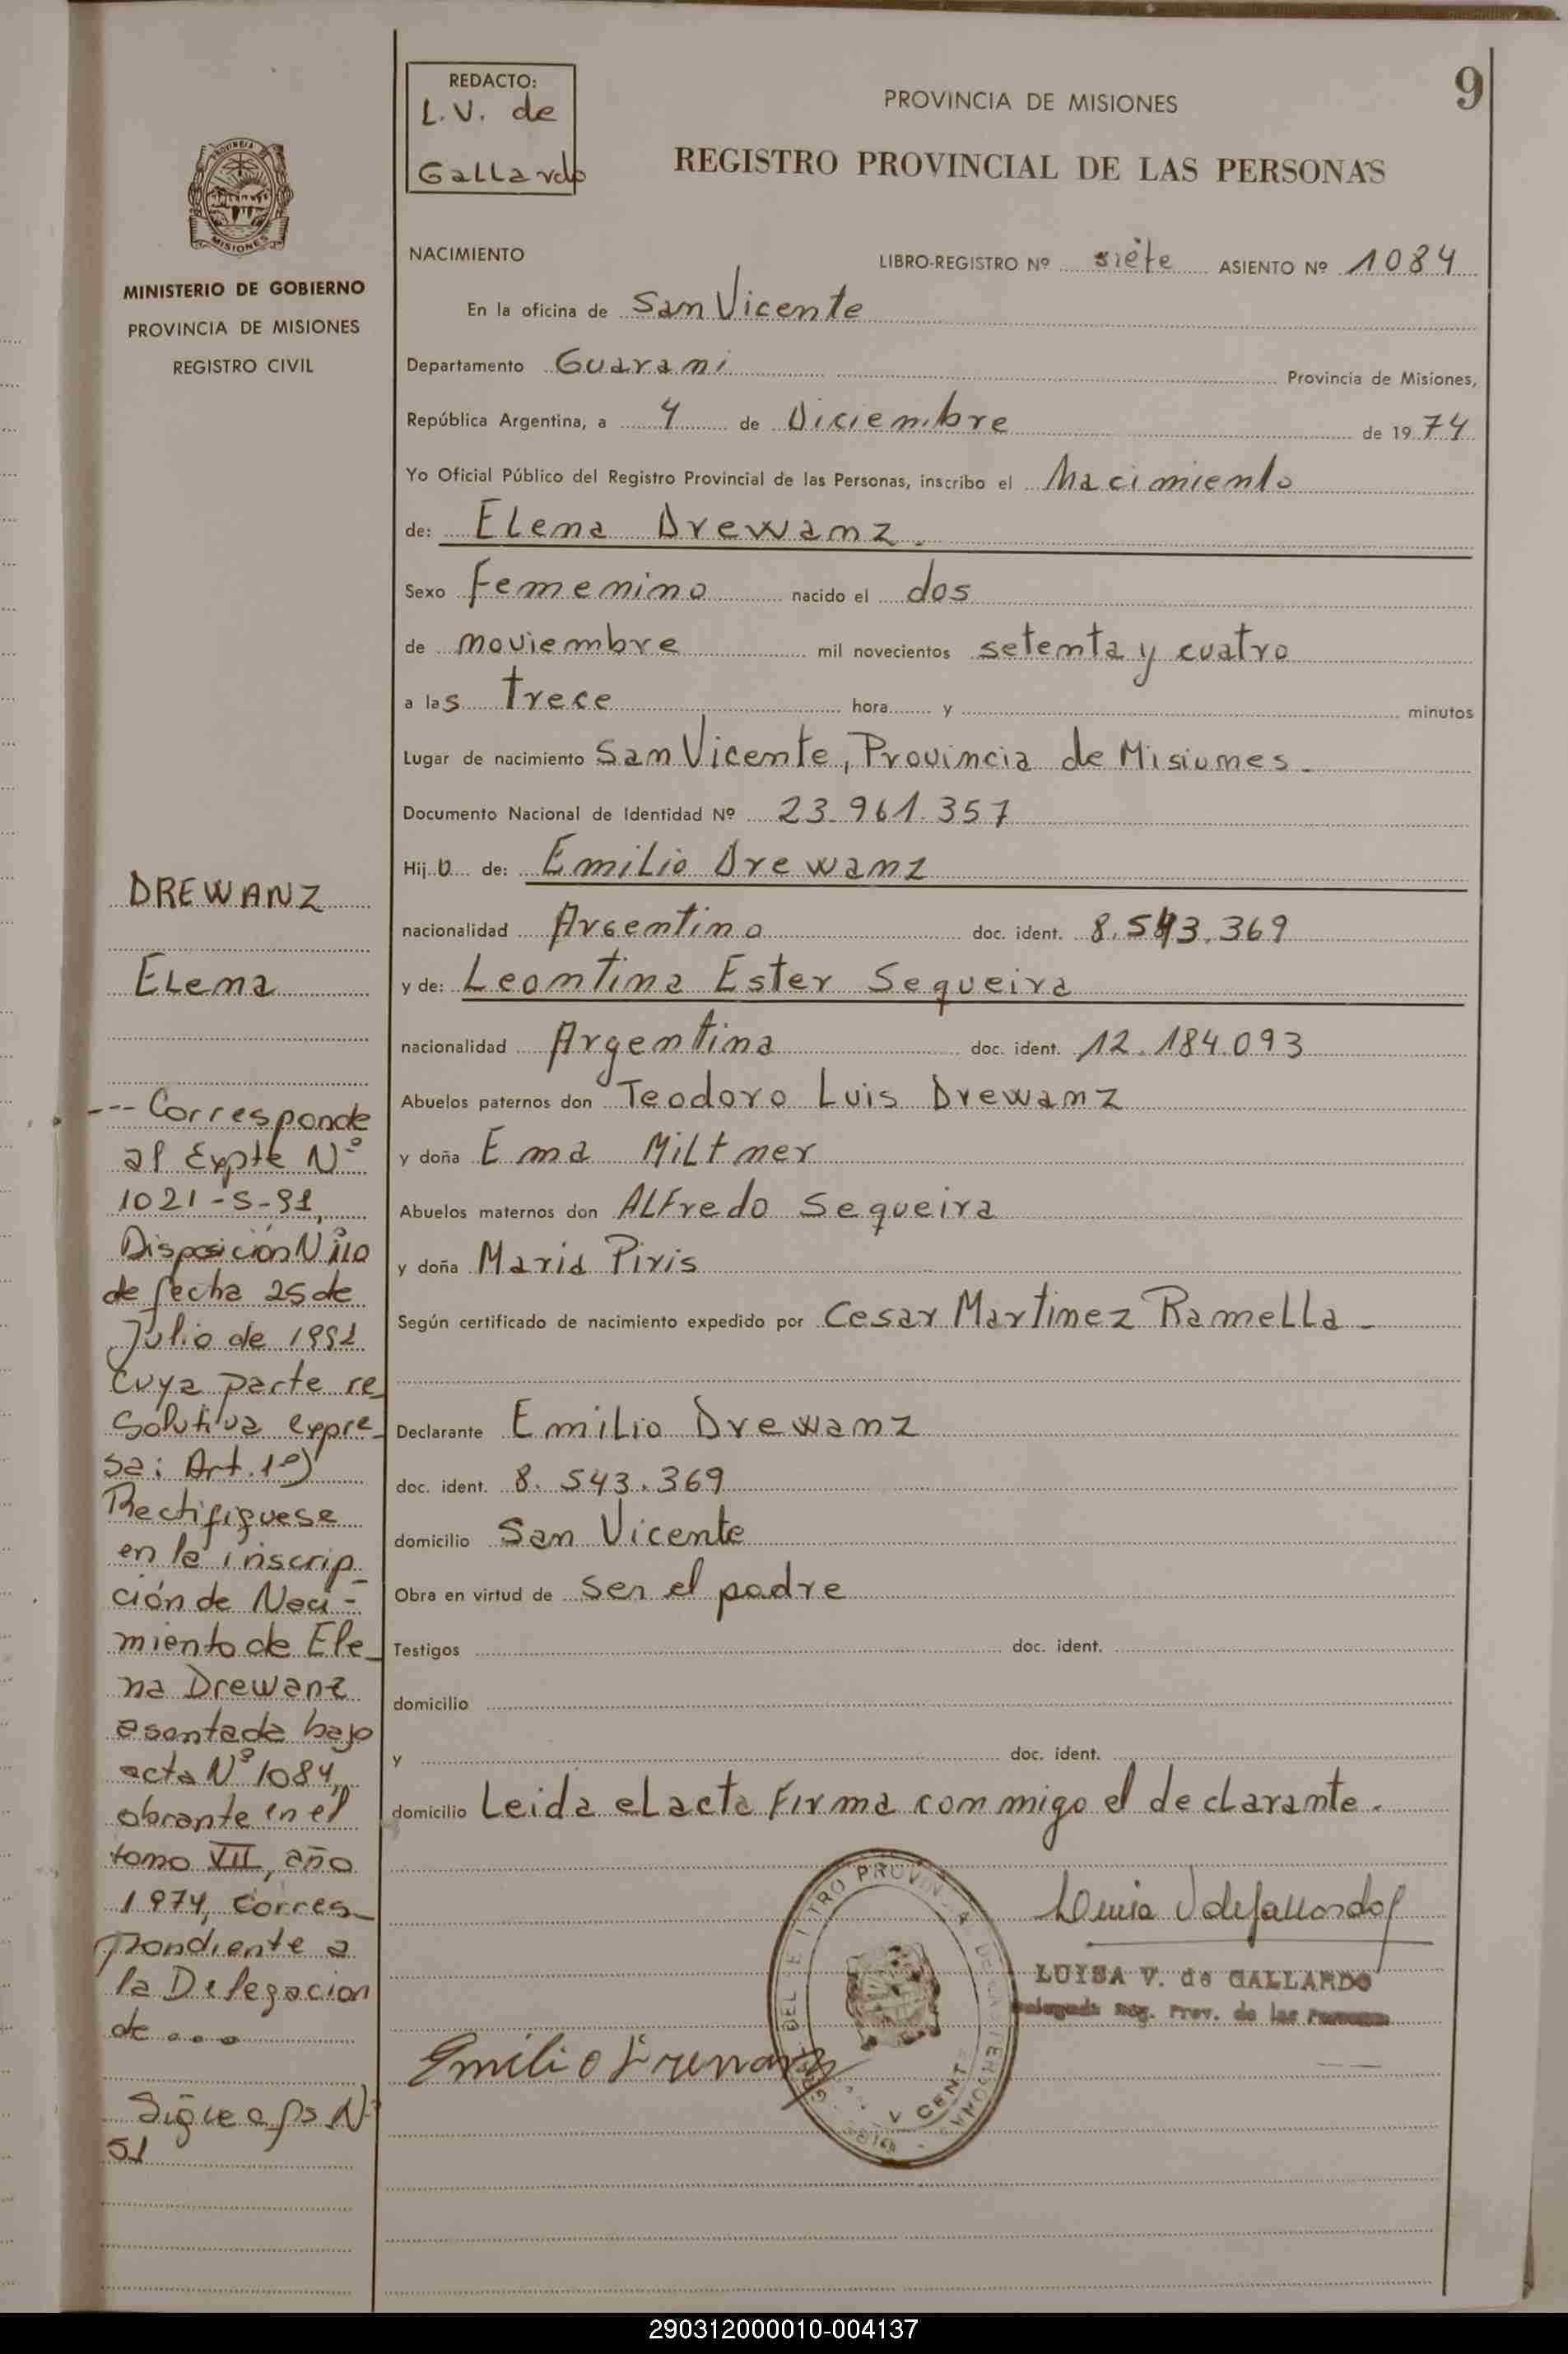 REDACTO:
L.V. de
Gallardo
PROVINCIA DE MISIONES
9
REGISTRO PROVINCIAL DE LAS PERSONAS
PROVINCIA DE
MISIONES
MINISTERIO DE GOBIERNO
PROVINCIA DE MISIONES
REGISTRO CIVIL
NACIMIENTO LIBRO-REGISTRO Nº siete ASIENTO Nº 1084
En la oficina de San Vicente
Departamento Guarani Provincia de Misiones,
República Argentina, a 4 de Diciembre de 1974
Yo Oficial Público del Registro Provincial de las Personas, inscribo el Nacimiento
de: Elena Drewanz.
Sexo Femenino nacido el dos
de noviembre mil novecientos setenta y cuatro
a las trece hora y minutos
Lugar de nacimiento San Vicente, Provincia de Misiones.
Documento Nacional de Identidad Nº 23.961.357
Hij de: Emilio Drewanz
nacionalidad Argentino doc. ident. 8.543.369
y de: Leontina Ester Sequeira
nacionalidad Argentina doc. ident. 12.184.093
Abuelos paternos don Teodoro Luis Drewanz
y doña Ema Miltner
Abuelos maternos don Alfredo Sequeira
y doña Maria Piris
Según certificado de nacimiento expedido por Cesar Martinez Ramella
Declarante Emilio Drewanz
doc. ident. 8.543.369
domicilio San Vicente
Obra en virtud de ser el padre
Testigos doc. ident.
domicilio
y doc. ident.
domicilio Leida el acta firma conmigo el declarante.
LUISA V. de GALLARDO
Reg. Prov. de las
Emilio Drewanz
DREWANZ
Elena
--- Corresponde
al Expte Nº
1021-S-91,
Disposición Nº 110
de fecha 25 de
Julio de 1991
cuya parte re-
solutiva expre-
sa: Art. 1º)
Rectifiquese
en la inscrip-
ción de Naci-
miento de Ele-
na Drewanz
asentada bajo
acta Nº 1084,
obrante en el
tomo VII, año
1974, corres-
pondiente a
la Delegacion
de...
Sigue a fs Nº
51
290312000010-004137